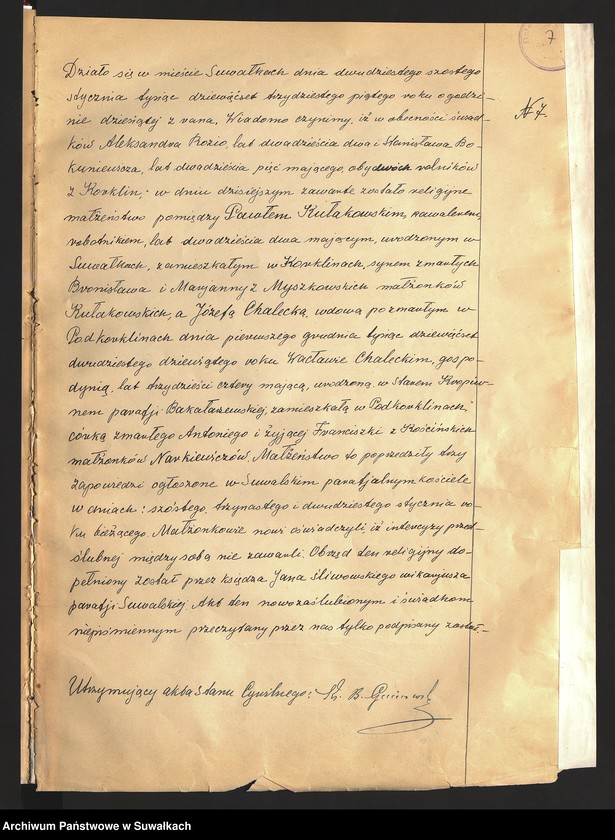 7
№ 7.
Działo się w mieście Suwałkach dnia dwudziestego szóstego
stycznia tysiąc dziewięćset trzydziestego piątego roku o godzi-
nie dziesiątej z rana. Wiadomo czynimy, iż w obecności świad-
ków Aleksandra Rozio, lat dwadzieścia dwa i Stanisława Bo-
kuniewicza, lat dwadzieścia pięć mającego, obydwóch rolników
z Korklin, w dniu dzisiejszym zawarte zostało religijne
małżeństwo pomiędzy Pawłem Kułakowskim, kawalerem,
robotnikiem, lat dwadzieścia dwa mającym, urodzonym w
Suwałkach, zamieszkałym w Korklinach, synem zmarłych
Bronisława i Maryanny z Myszkowskich małżonków
Kułakowskich, a Józefą Chalecką, wdową po zmarłym w
Podkorklinach dnia pierwszego grudnia tysiąc dziewięćset
dwudziestego dziewiątego roku Wacławie Chaleckim, gospo-
dynią, lat trzydzieści cztery mającą, urodzoną w Starem Krzyw-
nem parafji Bakałarzewskiej, zamieszkałą w Podkorklinach,
córką zmarłego Antoniego i żyjącej Franciszki z Kościńskich
małżonków Narkiewiczów. Małżeństwo to poprzedziły trzy
zapowiedzi ogłoszone w Suwalskim parafjalnym kościele
w dniach: szóstego, trzynastego i dwudziestego stycznia ro-
ku bieżącego. Małżonkowie nowi oświadczyli, iż intercyzy przed-
ślubnej między sobą nie zawarli. Obrzęd ten religijny do-
pełniony został przez księdza Jana Śliwowskiego wikarjusza
parafji Suwalskiej. Akt ten nowozaślubionym i świadkom
niepiśmiennym przeczytany przez nas tylko podpisany został.-
Utrzymujący akta Stanu Cywilnego: Ks. B.
Archiwum Państwowe w Suwałkach